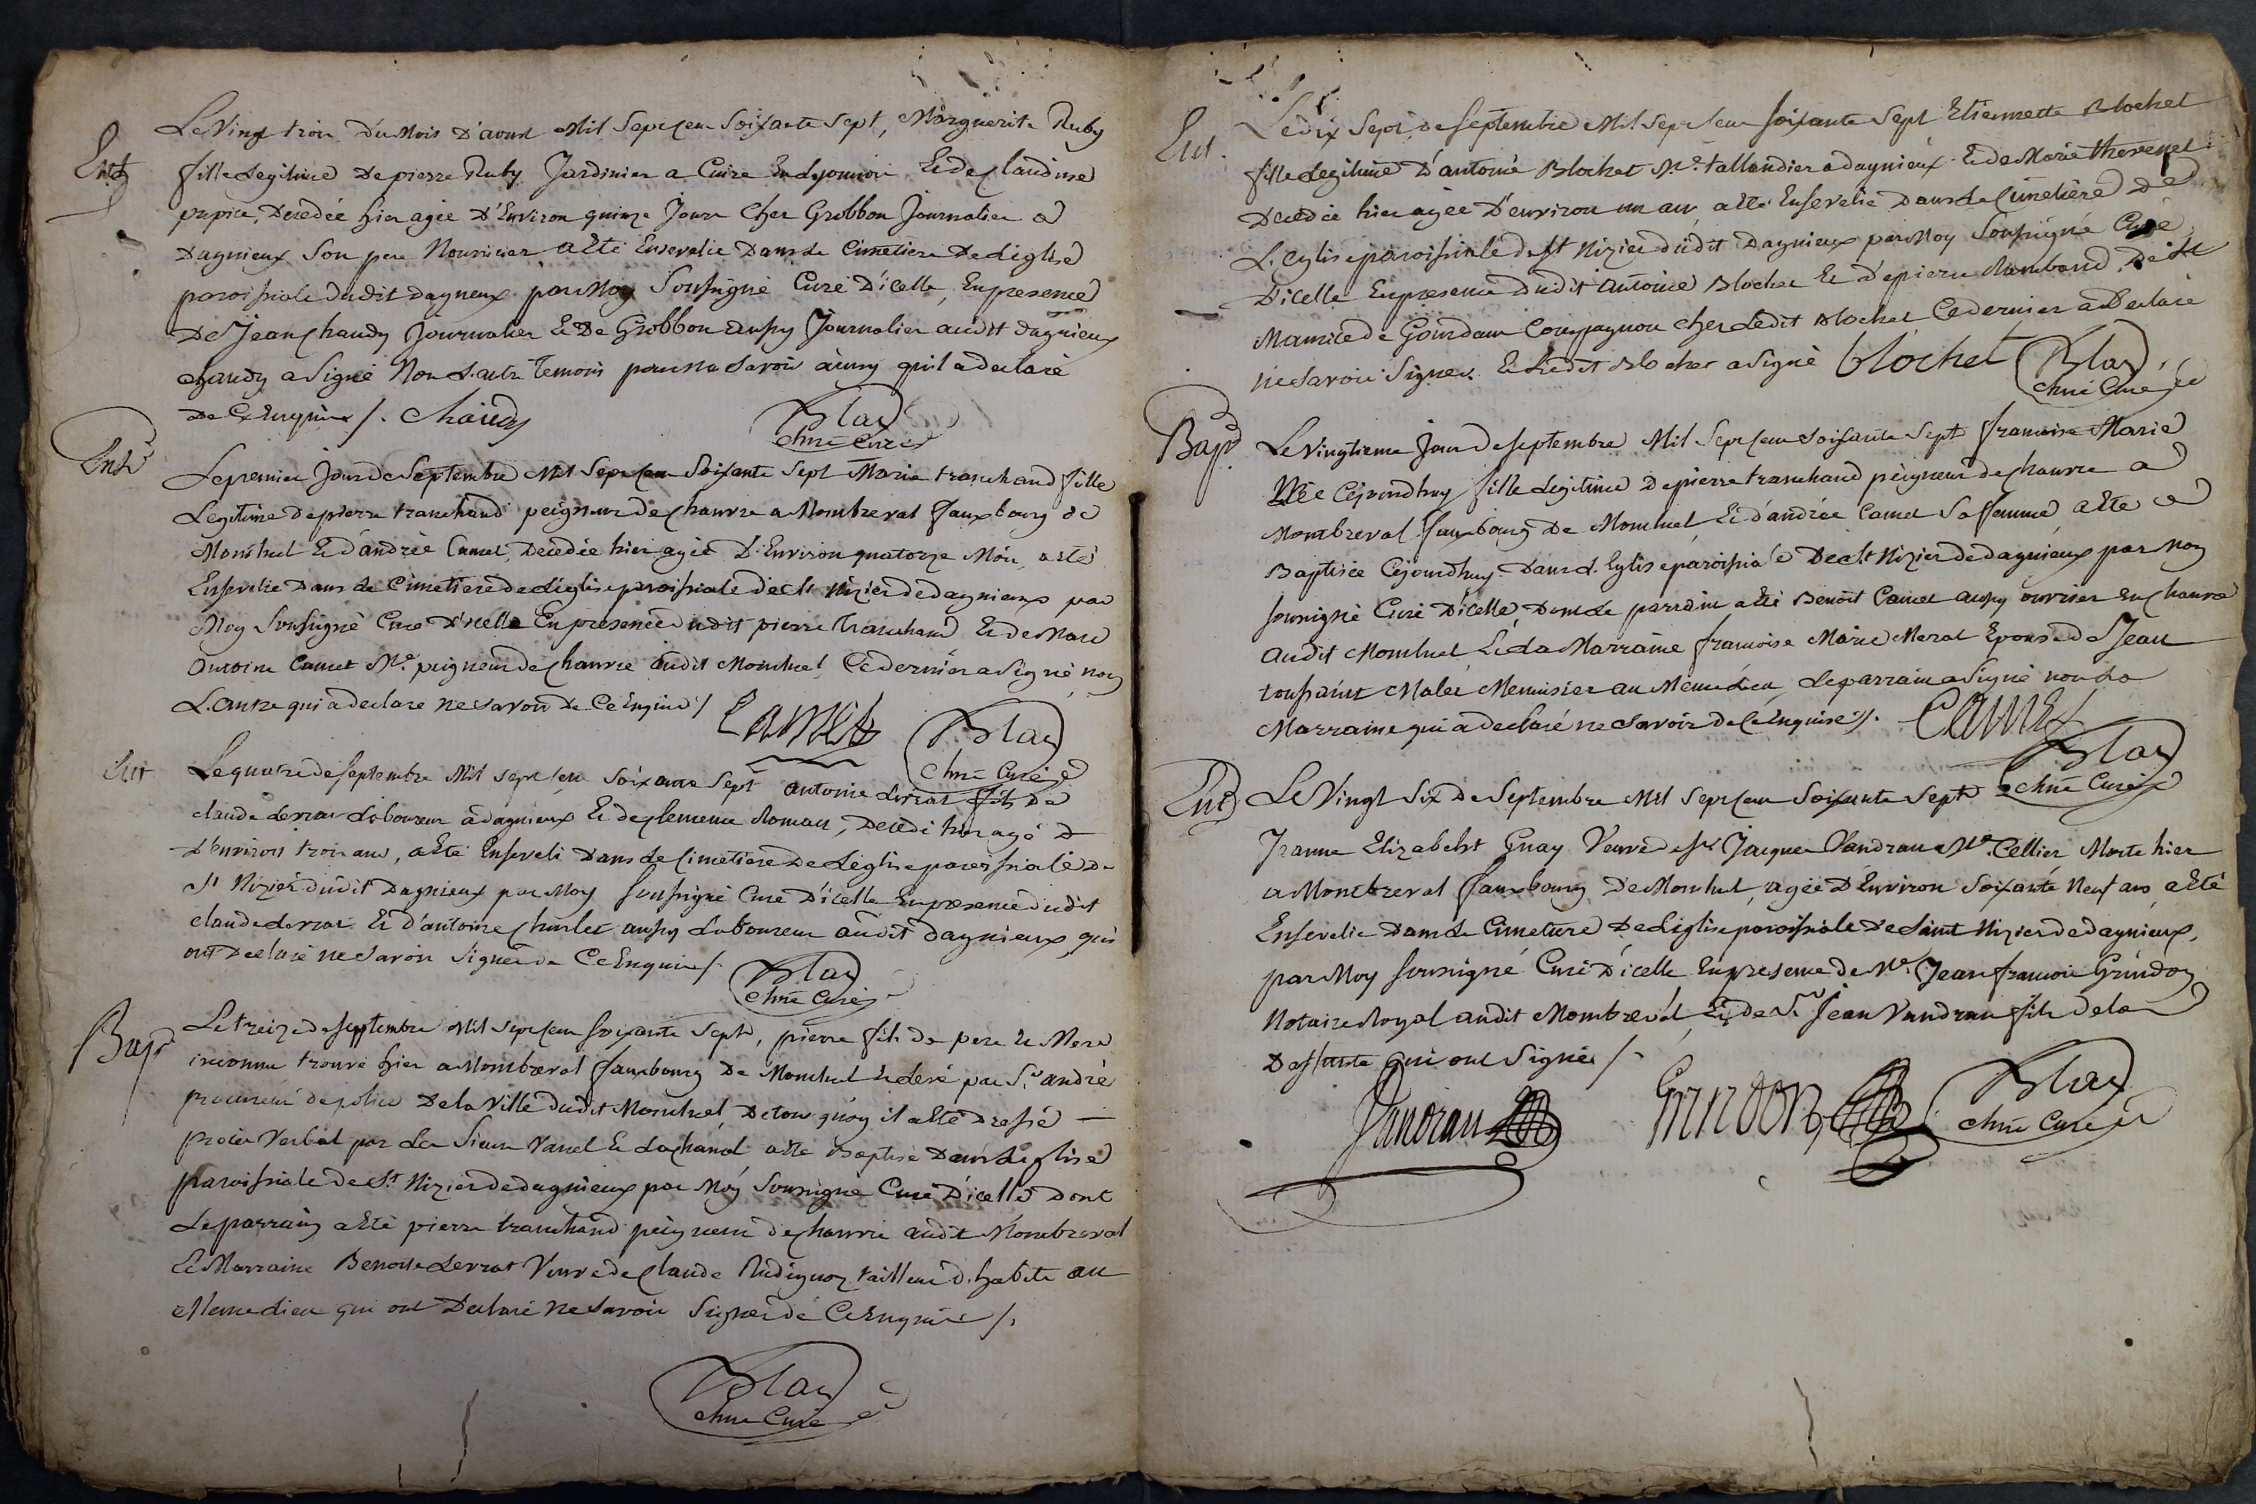 Ent
Le Vingt trois du Mois D'aoust Mil Sept Cent Soixante Sept, Marguerite Ruby
fille Legitime De pierre Ruby Jardinier a Cuire En Lyonnois Et de Claudine
Decedée hier agée D'Environ quinze Jours Chez Grobbon Journalier a
Dagnieux Son pere Nourricier a Eté Ensevelie Dans Le Cimetiere De L'église
paroissiale Dudit dagneux par Moy Soussigné Curé D'icelle, En presence
De Jean Chaudy Journalier Et De Grobbon aussy Journalier audit dagnieux
chaudy a Signé Non L'autre Temoin pour ne Savoir ainsy qu'il a declaré
De Ce Enquis /. Chaudy
Blay
chne Curé
Ent
Le premier Jour de Septembre Mil Sept Cent Soixante Sept Marie tranchand fille
Legitime de pierre tranchand peigneur de chanvre a Mombreval fauxbourg de
Montluel Et d'andrée Camet, Decedée hier agée D'Environ quatorze Mois, a eté
Ensevelie Dans Le Cimetiere de L'eglise paroissiale de St Nizier de dagnieux par
Moy Soussigné Curé D'icelle En presence dudit pierre Tranchand Et de Marc
antoine Camet Me. peigneur de chanvre audit Montluel Ce dernier a Signé non
L'autre qui a declaré ne Savoir De Ce Enquis /
CAMET
Blay
chne Curé
Ent
Le quatre de Septembre Mil sept Cent Soixante Sept antoine Lerrat fils De
claude Lerrat Laboureur a dagnieux Et de Clemence Roman, Decedé hier agé D
D'Environ trois ans, a Eté Enseveli Dans Le Cimetiere De L'église paroissiale De
St Nizier dudit Dagnieux par Moy Soussigné Curé D'icelle En presence dudit
claude Lerrat Et d'antoine aussy Laboureur audit dagnieux qui
ont Declaré ne Savoir Signer de Ce Enquis /.
Blay
chne Curé
Bapt
Le treize de Septembre Mil Sept Cent Soixante Sept, pierre fils de pere et Mere
inconnu trouvé hier a Mombreval fauxbourg De Montluel Et Levé par Sr. andré
procureur de police De la Ville dudit Montluel De tout quoy il a Eté Dressé
procés Verbal par Les Sieurs Vanel Et a Eté Baptisé Dans L'eglise
paroissiale de St. Nizier de dagnieux par Moy Soussigné Curé D'icelle Dont
Le parrain a Eté pierre tranchand peigneur de chanvre audit Mombreval
Et Marraine Benoite Lerrat Veuve de Claude tailleur d'habits au
Meme Lieu qui ont Declaré Ne Savoir Signer de Ce Enquis /.
Blay
chne Curé
Ent.
Le dix Sept de Septembre Mil Sept Cent Soixante Sept Etiennette Blochet
fille Legitime D'antoine Blochet Me. tallandier a dagnieux Et de Marie thevenet
Decedée hier agée D'environ un an a Eté Ensevelie Dans Le Cimetière De
L'Eglise paroissiale de St Nizier dudit Dagnieux par Moy Soussigné Curé
D'icelle En presence Dudit antoine Blochet Et de pierre Rambaud De St
Maurice de Gourdans Compagnon chez Ledit Blochet Ce dernier a Declaré
ne Savoir Signer. Et Ledit Blochet a Signé blochet
Blay
chne Curé
Bapt
Le Vingtieme Jour de Septembre Mil Sept Cent Soixante Sept francoise Marie
Née Cejourdhuy fille Legitime De pierre tranchand peigneur de chanvre a
Mombreval fauxbourg De Montluel Et d'andrée Camet Sa femme, a Eté
Baptisée Cejourdhuy Dans L'Eglise paroissiale De St. Nizier de dagnieux par Moy
soussigné Curé D'icelle Dont Le parrain a Eté Benoit Camet aussy ouvrier En chanvre
audit Montluel Et La Marraine francoise Marie Merat Epouse de Jean
toussaint Malet Menuisier au Meme Lieu, Le parrain a Signé non La
Marraine qui a declaré ne Savoir De Ce Enquise /.
CAMET
Blay
chne Curé
Ent
Le Vingt Six De Septembre Mil Sept Cent Soixante Sept
Jeanne Elizabeht Guay Veuve de Sr Jacques Vandran Me. Cellier Morte hier
a Mombreval fauxbourg De Montluel, agée D'Environ Soixante Neuf ans, a Eté
Ensevelie Dans Le Cimetiere De L'église paroissiale De Saint Nizier de dagnieux,
par Moy soussigné Curé D'icelle En presence de Me. Jean francois Grindon
Notaire Royal audit Mombreval, Et de Sr Jean Vandran fils de la
Deffunte qui ont Signés /.
Vandran
GRINDON
Blay
chne Curé